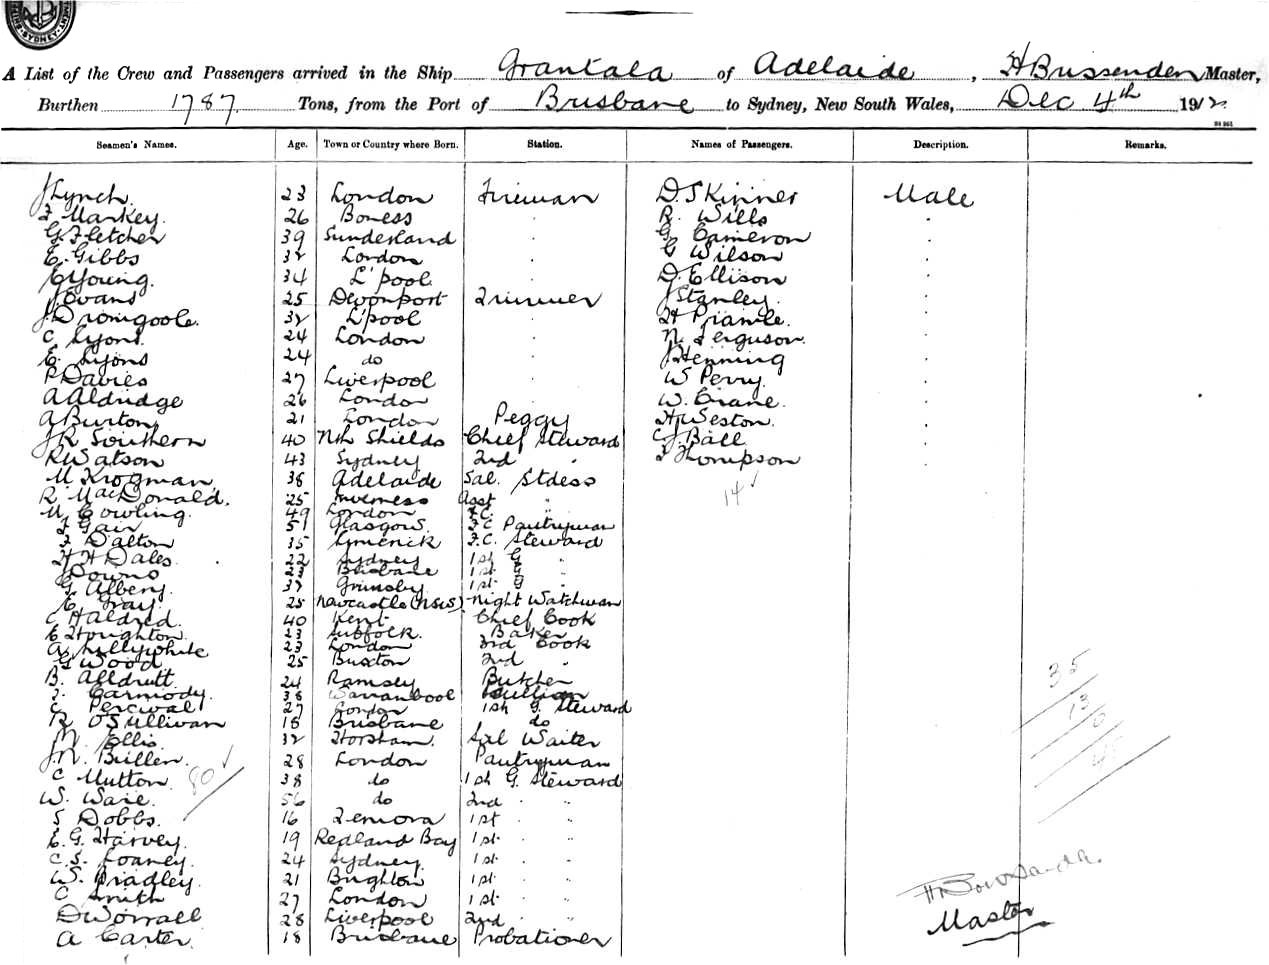 A List of the Crew and Passengers arrived in the Ship Grantala of Adelaide, H Brissenden Master,
Burthen 1787 Tons, from the Port of Brisbane to Sydney, New South Wales, Dec 4th 1912
Seamen's Names. Age. Town or Country where Born. Station. Names of Passengers. Description. Remarks.
J Lynch. 23 London Fireman D. Skinner Male
F Markey. 26 Boness " R. Wills "
G. Fletcher 39 Sunderland " G. Cameron "
E. Gibbs 32 London " G Wilson "
E Young. 34 L'pool. " D. Ellison "
J Evans 25 Devonport Trimmer J Stanley. "
J. Dromgoole. 32 L'pool " H "
C Lyons. 24 London " N. Ferguson. "
E. Lyons 24 do " J Henning "
P Davies 27 Liverpool " W Perry. "
A Aldridge 26 London " W. Crane. "
A Burton 21 London Peggy H Weston. "
J R Southern 40 Nth Shields Chief Steward C J Ball "
R Watson 43 Sydney 2nd " T Thompson "
M Krogman 38 Adelaide Sal. Stdess 14
R. MacDonald. 25 Inverness Asst "
M Cowling. 49 London F.C. "
F Gair 51 Glasgow. F C Pantryman
F Dalton 35 Limerick F.C. Steward
H H Dales 22 Sydney 1st G "
J Downs 23 Brisbane 1st G "
G. Albery. 32 Grimsby 1st G "
E. Gray. 25 Newcastle (NSW). Night Watchman
C Haldred. 40 Kent Chief Cook
E Houghton 23 Suffolk. Baker
A Lillywhite 23 London 3rd Cook
G Wood 25 Buxton 2nd "
B. Alldritt 24 Ramsey Butcher
J. Carmody. 38 Warrambool Scullion
C Percival 27 London 1st G. Steward
R O'Sullivan 18 Brisbane do
M Ellis 32 Horsham. Sal Waiter
J. N. Bullen. 28 London Pantryman
C Mutton. 38 do 1st G. Steward
80
W. Ware. 56 do 2nd " "
S Dobbs. 16 Temora 1st " "
E. G. Harvey. 19 Redland Bay 1st " "
C. S. Loaney. 24 Sydney. 1st " "
W. Bradley. 21 Brighton 1st " "
C Smith 27 London 1st " "
D Worrall 28 Liverpool 2nd " "
A Carter. 18 Brisbane Probationer
35
13
Master